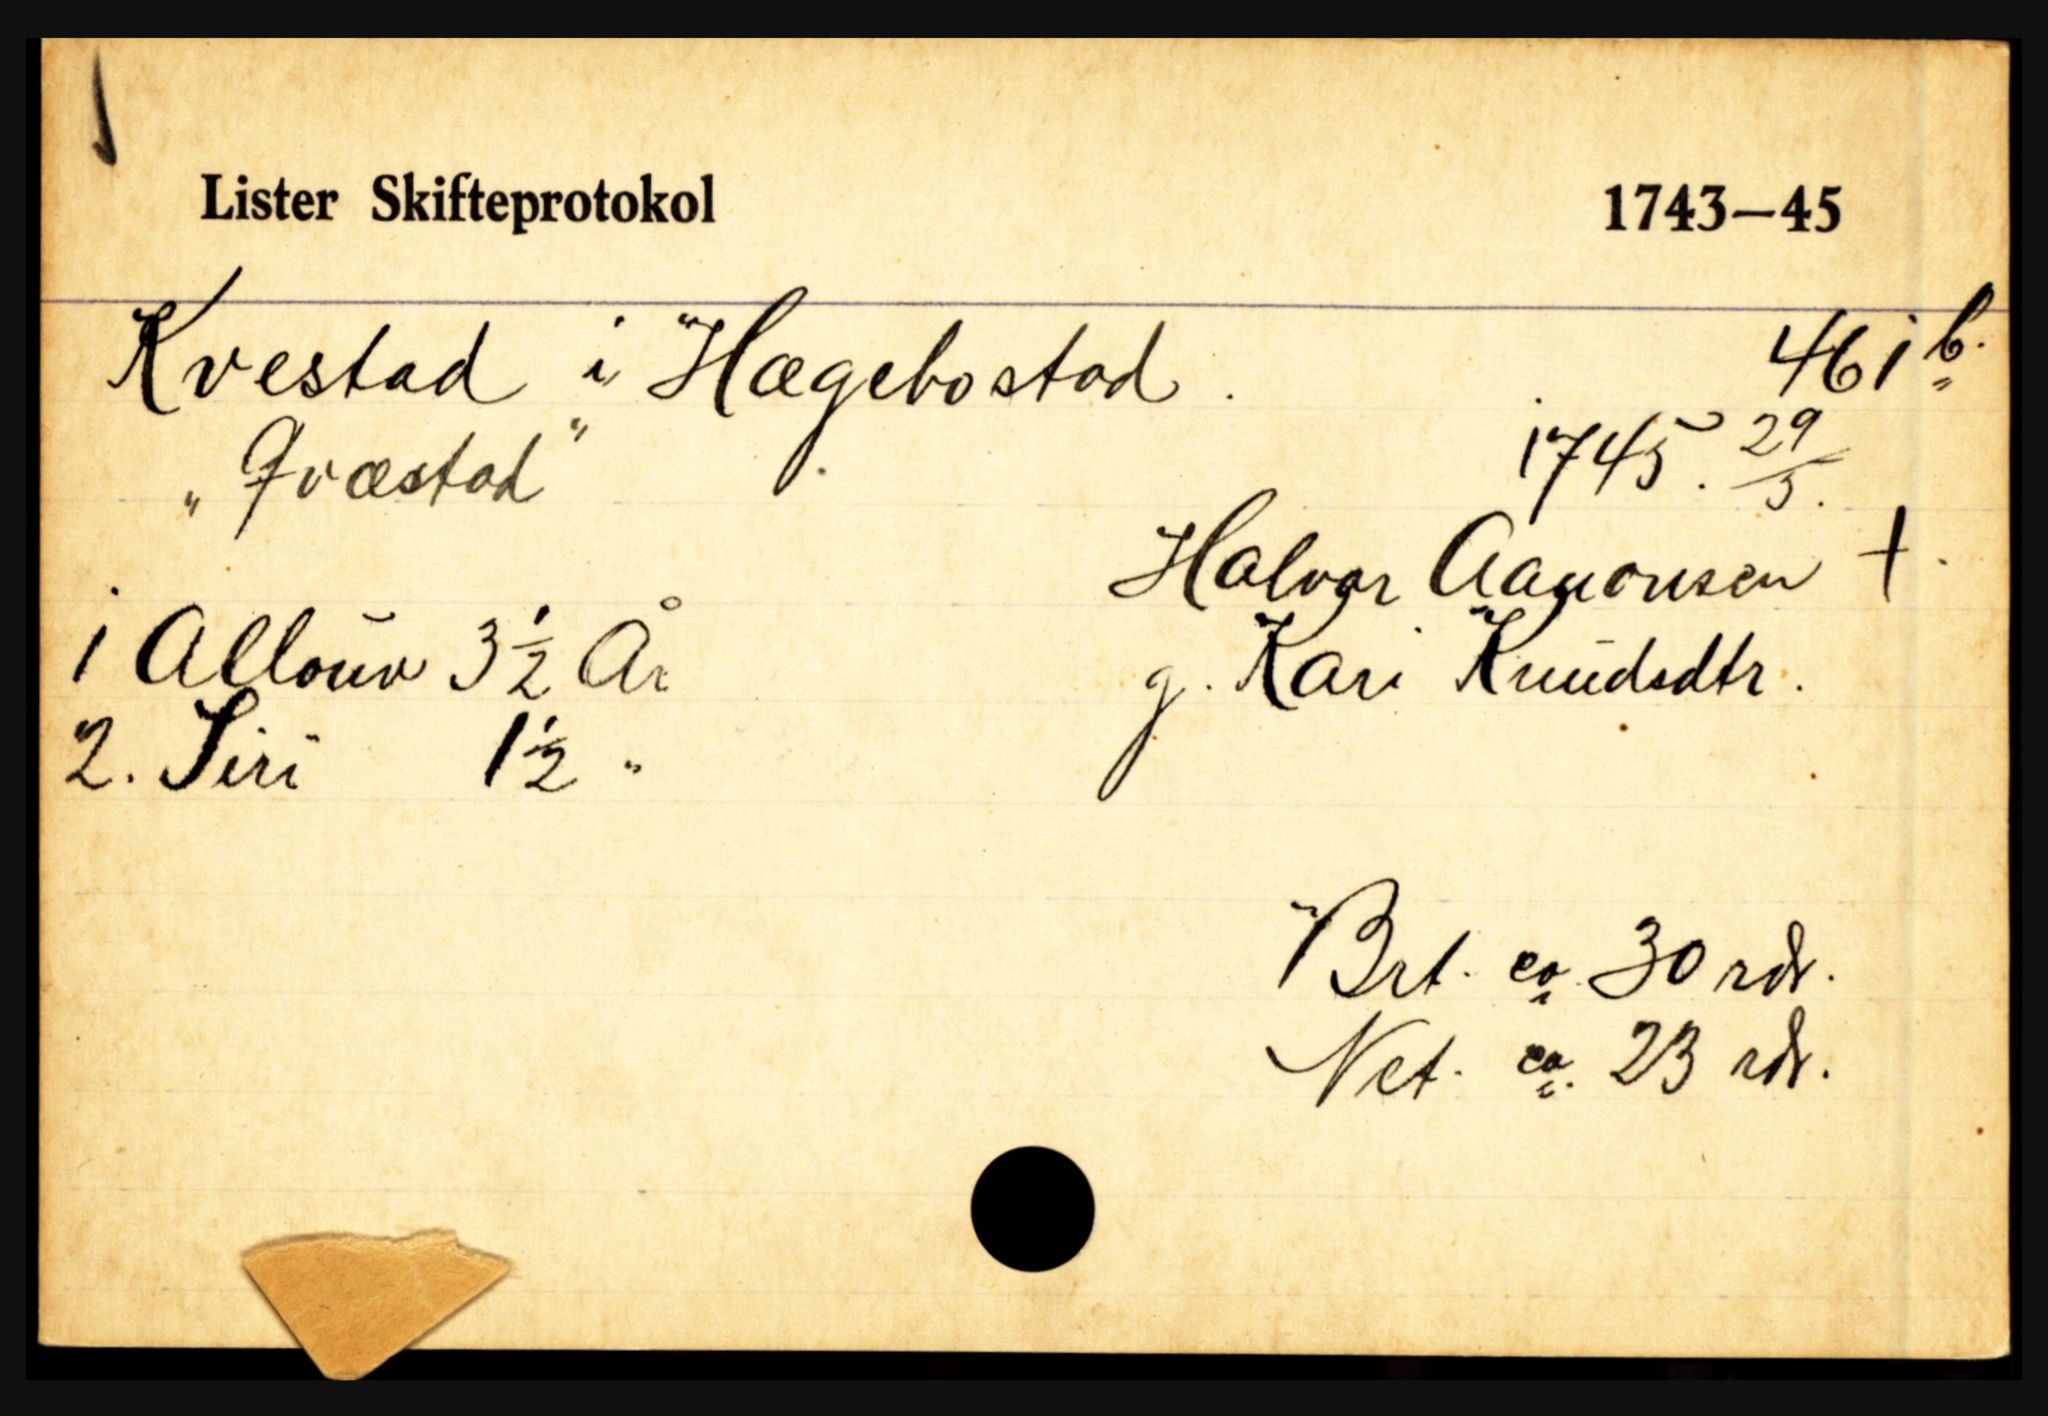 Lister Skifteprotokol 1743–45
Kvestad i Hægebostad. 461 b.
"Qvæstad" 1745. 29/5.
Halvor Aanonsen †.
1 Alloŭv 3½ År g. Kari Knŭdsdtr.
2. Siri 1½ "
Brt. ca. 30 rdr.
Net. ca. 23 rdr.